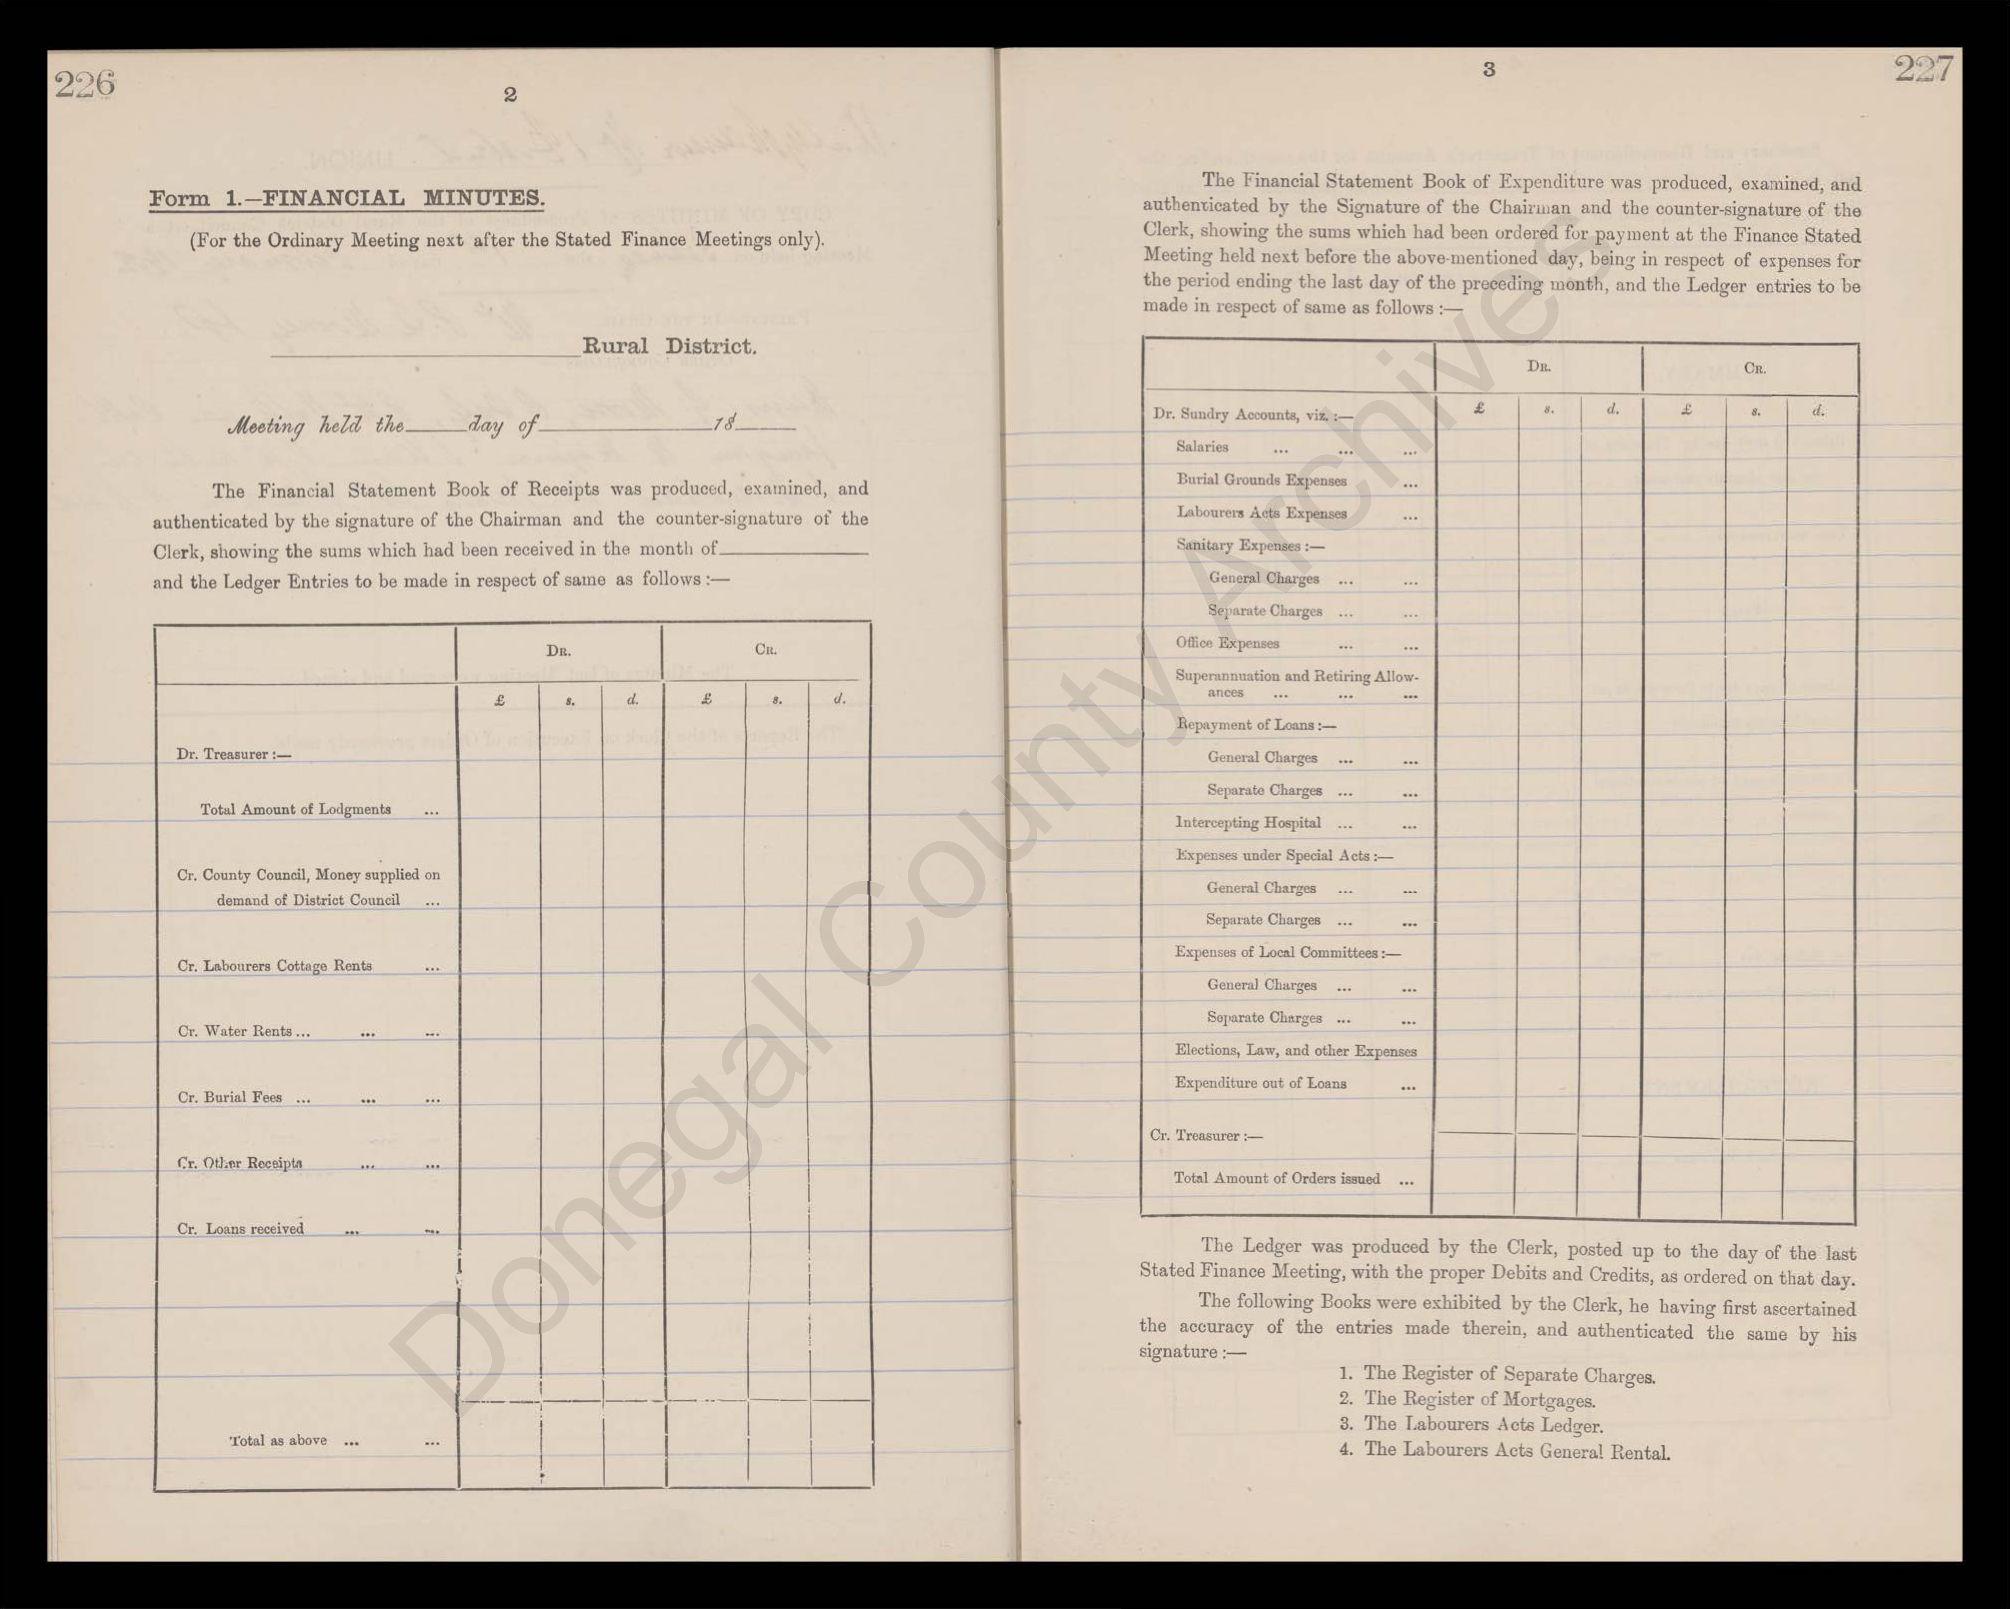 226
2
Form 1.—FINANCIAL MINUTES.
(For the Ordinary Meeting next after the Stated Finance Meetings only).
Rural District.
Meeting held the day of 18
The Financial Statement Book of Receipts was produced, examined, and
authenticated by the signature of the Chairman and the counter-signature of the
Clerk, showing the sums which had been received in the month of
and the Ledger Entries to be made in respect of same as follows :—
DR. CR.
£ s. d. £ s. d.
Dr. Treasurer :—
Total Amount of Lodgments ...
Cr. County Council, Money supplied on
demand of District Council ...
Cr. Labourers Cottage Rents ...
Cr. Water Rents ... ... ...
Cr. Burial Fees ... ... ...
Cr. Other Receipts ... ...
Cr. Loans received ... ...
Total as above ... ...
227
3
The Financial Statement Book of Expenditure was produced, examined, and
authenticated by the Signature of the Chairman and the counter-signature of the
Clerk, showing the sums which had been ordered for payment at the Finance Stated
Meeting held next before the above-mentioned day, being in respect of expenses for
the period ending the last day of the preceding month, and the Ledger entries to be
made in respect of same as follows :—
DR. CR.
£ s. d. £ s. d.
Dr. Sundry Accounts, viz. :—
Salaries ... ... ...
Burial Grounds Expenses ...
Labourers Acts Expenses ...
Sanitary Expenses :—
General Charges ... ...
Separate Charges ... ...
Office Expenses ... ...
Superannuation and Retiring Allow-
ances ... ... ...
Repayment of Loans :—
General Charges ... ...
Separate Charges ... ...
Intercepting Hospital ... ...
Expenses under Special Acts :—
General Charges ... ...
Separate Charges ... ...
Expenses of Local Committees :—
General Charges ... ...
Separate Charges ... ...
Elections, Law, and other Expenses
Expenditure out of Loans ...
Cr. Treasurer :—
Total Amount of Orders issued ...
The Ledger was produced by the Clerk, posted up to the day of the last
Stated Finance Meeting, with the proper Debits and Credits, as ordered on that day.
The following Books were exhibited by the Clerk, he having first ascertained
the accuracy of the entries made therein, and authenticated the same by his
signature :—
1. The Register of Separate Charges.
2. The Register of Mortgages.
3. The Labourers Acts Ledger.
4. The Labourers Acts General Rental.
Donegal County Archives